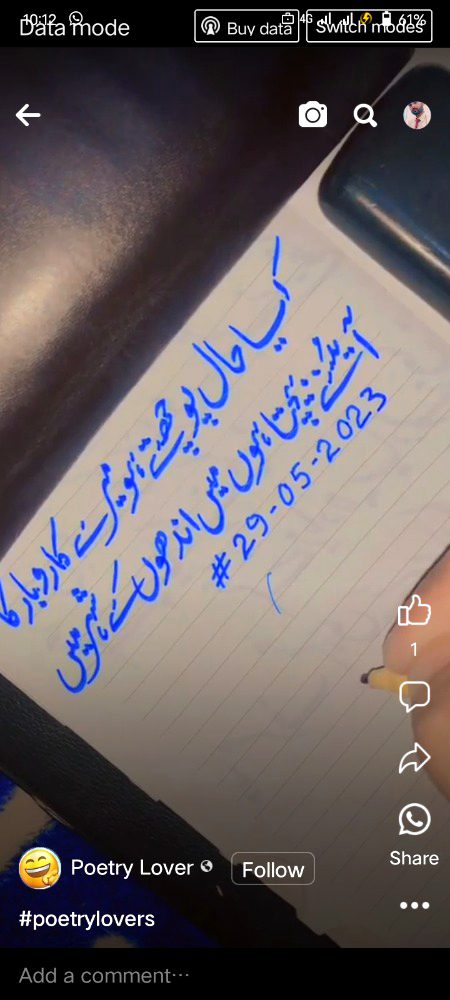 10:12
4G
61%
Data mode
Buy data
Switch modes
کیا حال پوچھتے ہو میرے کاروبار کا
آئینے بیچتا ہوں میں اندھوں کے شہر میں
# 29-05-2023
1
Share
Poetry Lover
Follow
#poetrylovers
Add a comment...